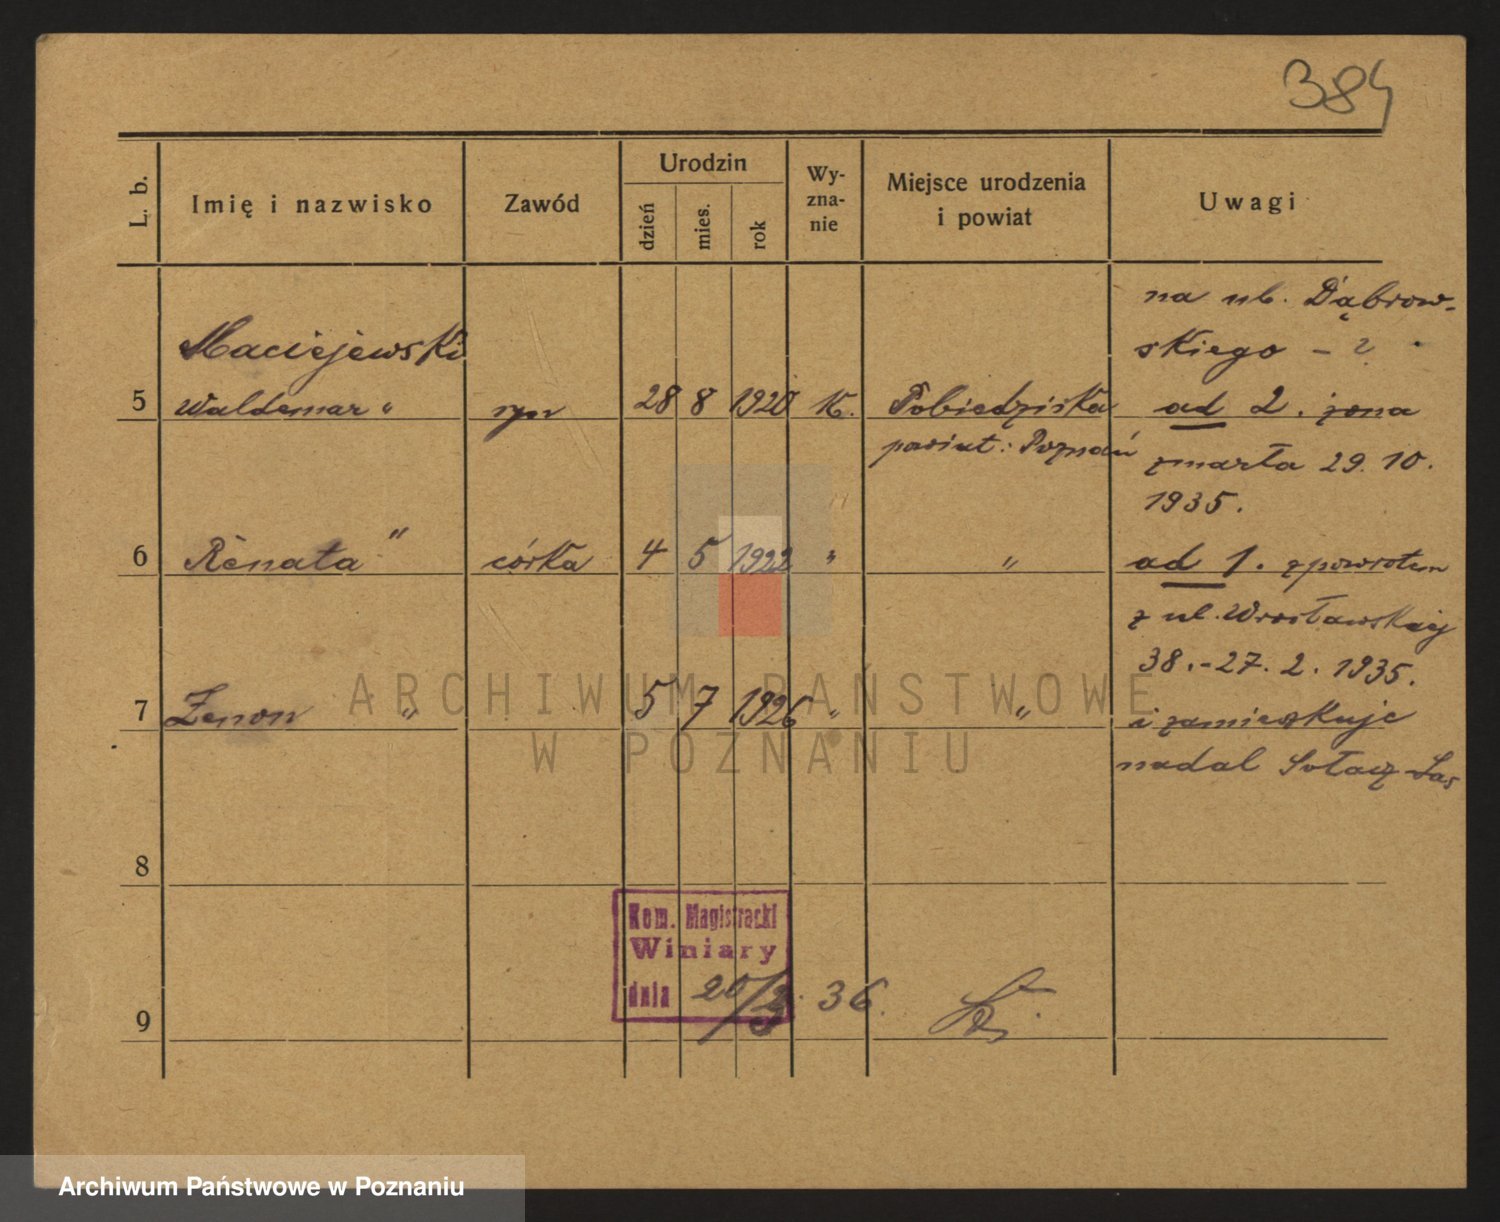 384
L. b.
Imię i nazwisko
Zawód
Urodzin
dzień
mies.
rok
Wy-
zna-
nie
Miejsce urodzenia
i powiat
Uwagi
na ul. Dąbrow-
skiego - ?
Maciejewski
5 Waldemar " syn 28 8 1920 K. Pobiedziska ad 2. żona
powiat: Poznań zmarła 29. 10.
1935.
6 Renata " córka 4 5 1922 " " ad 1. zpowrotem
z ul. Wrocławskiej
38. - 27. 2. 1935.
7 Zenon " 5 7 1926 " " i zamieszkuje
nadal Sołacz Las
8
Kom. Magistracki
Winiary
dnia 20/3. 36.
9
ARCHIWUM PAŃSTWOWE
W POZNANIU
Archiwum Państwowe w Poznaniu